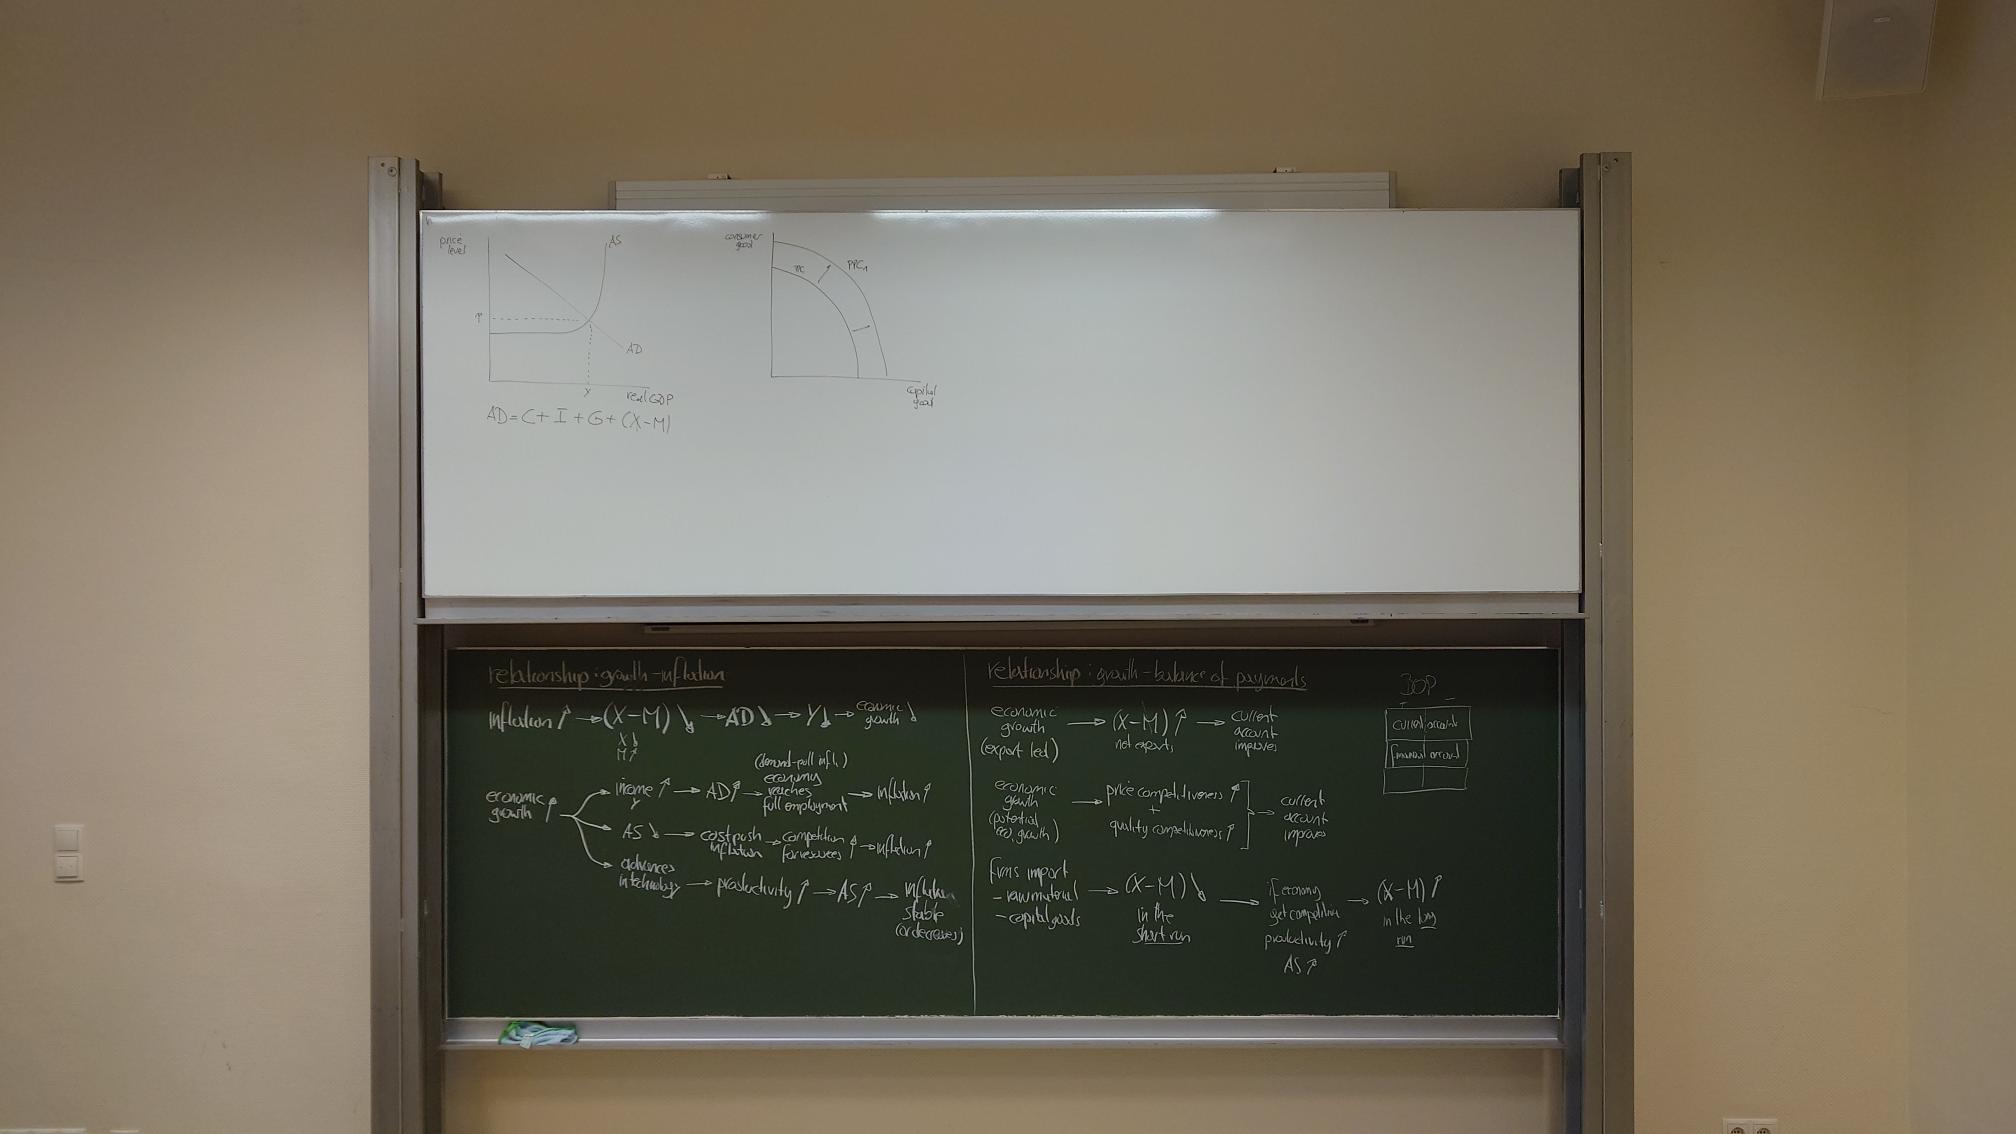 price
level
AS
P
AD
Y
real GDP
AD=C+ I + G + (X-M)
consumer
good
PPC
PPC₁
capital
good
relationship: growth-inflation
inflation ↑ → (X-M) ↓ → AD ↓ → Y↓ → economic
growth ↓
X↓
M↑
economic
growth ↑
income ↑ → AD↑ →
Y
(demand-pull infl.)
economy
reaches
full employment
→ inflation ↑
AS ↓ → cost push
inflation
→ competition
for resources ↑ → inflation ↑
advances
in technology → productivity ↑ → AS↑ → inflation
stable
(or decreases)
relationship: growth-balance of payments
economic
growth
(export led)
→ (X-M) ↑
net exports
→ current
account
improves
economic
growth
(potential
eco. growth)
→ price competitiveness ↑
+
quality competitiveness ↑
→ current
account
improves
firms import
- raw material
- capital goods
→ (X-M) ↓
in the
short run
→ if economy
get competitive
productivity ↑
AS↑
→ (X-M) ↑
in the long
run
BOP
+ -
current account
financial account